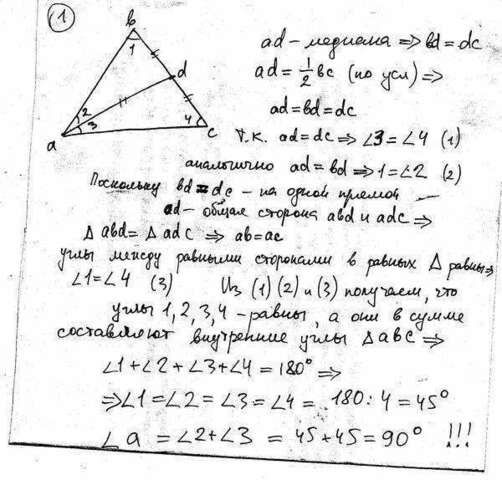 1
b
1
d
2
3
4
a
c
ad – медиана ⇒ bd = dc
ad = 1/2 bc (по усл) ⇒
ad = bd = dc
т.к. ad = dc ⇒ ∠3 = ∠4 (1)
аналогично ad = bd ⇒ 1 = ∠2 (2)
Поскольку bd = dc – на одной прямой
ad – общая сторона abd и adc ⇒
Δ abd = Δ adc ⇒ ab = ac
углы между равными сторонами в равных Δ равны ⇒
∠1 = ∠4 (3) Из (1) (2) и (3) получаем, что
углы 1, 2, 3, 4 – равны, а они в сумме
составляют внутренние углы Δ abc ⇒
∠1 + ∠2 + ∠3 + ∠4 = 180° ⇒
⇒ ∠1 = ∠2 = ∠3 = ∠4 = 180 : 4 = 45°
∠a = ∠2 + ∠3 = 45 + 45 = 90° !!!